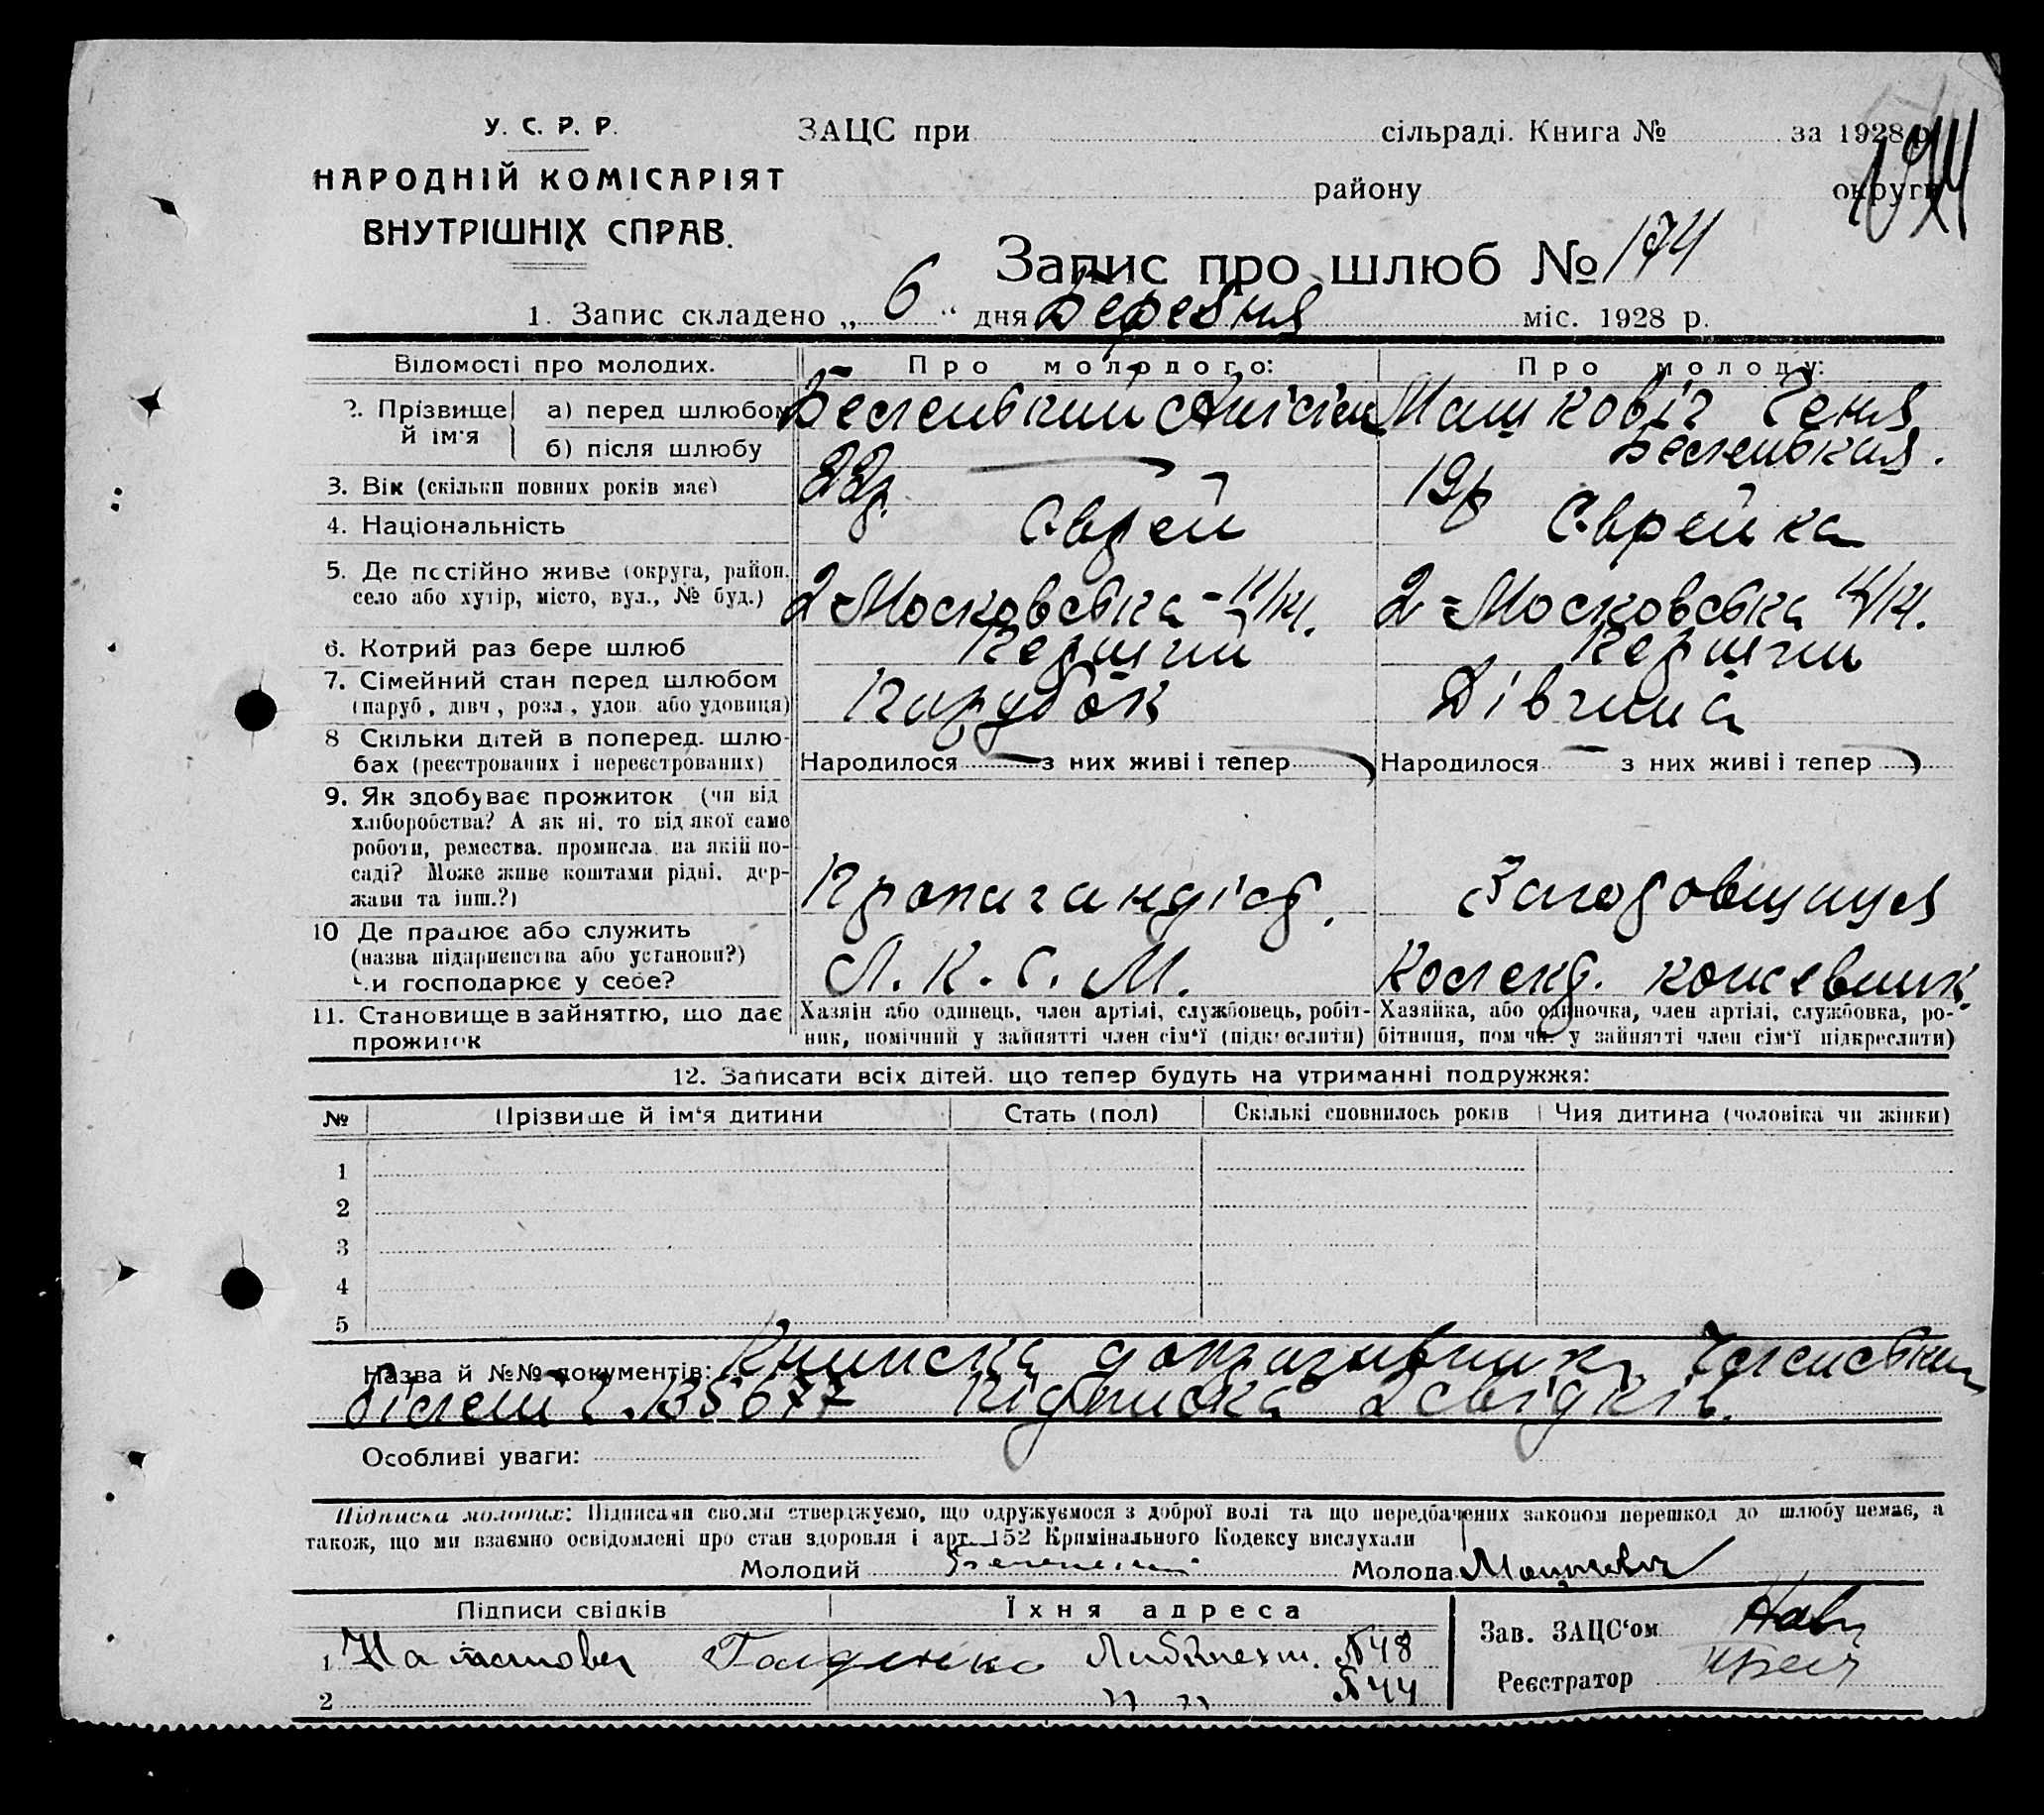 У. С. Р. Р.
НАРОДНІЙ КОМІСАРІЯТ
ВНУТРІШНІХ СПРАВ.
ЗАЦС при сільраді. Книга № за 1928 р.
району округи
Запис про шлюб № 174
1. Запис складено „ 6 “ дня Березня міс. 1928 р.
Відомості про молодих. Про молодого: Про молоду:
2. Прізвище й ім'я
а) перед шлюбом Машковіч Геня
б) після шлюбу —
3. Вік (скільки повних років має) 22р. 19р
4. Національність Єврей Єврейка
5. Де постійно живе (округа, район, село або хутір, місто, вул., № буд.) 2-Московська 2-Московська
6. Котрий раз бере шлюб Перший Перший
7. Сімейний стан перед шлюбом (паруб., дівч., розл., удов. або удовиця) Парубок Дівчина
8. Скільки дітей в поперед. шлюбах (реєстрованих і нереєстрованих) Народилося — з них живі і тепер — Народилося — з них живі і тепер —
9. Як здобуває прожиток (чи від
хліборобства? А як ні, то від якої саме
роботи, ремества, промисла, на якій по-
саді? Може живе коштами рідні, дер-
жави та інш.?) Пропагандіст. Заготовщиця
10. Де працює або служить
(назва підприємства або установи?)
Чи господарює у себе? Л.К.С.М. Колект. кожевник.
11. Становище в зайняттю, що дає прожиток
Хазяїн або одинець, член артілі, службовець, робіт-
ник, помічний у зайнятті член сім'ї (підкреслити)
Хазяйка, або одиночка, член артілі, службовка, ро-
бітниця, поміч. у зайнятті член сім'ї підкреслити)
12. Записати всіх дітей, що тепер будуть на утриманні подружжя:
№ Прізвище й ім'я дитини Стать (пол) Скількі сповнилось років Чия дитина (чоловіка чи жінки)
1
2
3
4
5
Назва й №№ документів: Членський
білет ч. 135677 Підписка 2 свідків.
Особливі уваги:
Підписка молодих: Підписами своїми стверджуємо, що одружуємося з доброї волі та що передбачених законом перешкод до шлюбу немає, а
також, що ми взаємно освідомлені про стан здоровля і арт. 152 Кримінального Кодексу вислухали
Молодий Молода Машкович
Підписи свідків Їхня адреса
1 Либкнехт. №48
2 " " №44
Зав. ЗАЦС'ом
Реєстратор